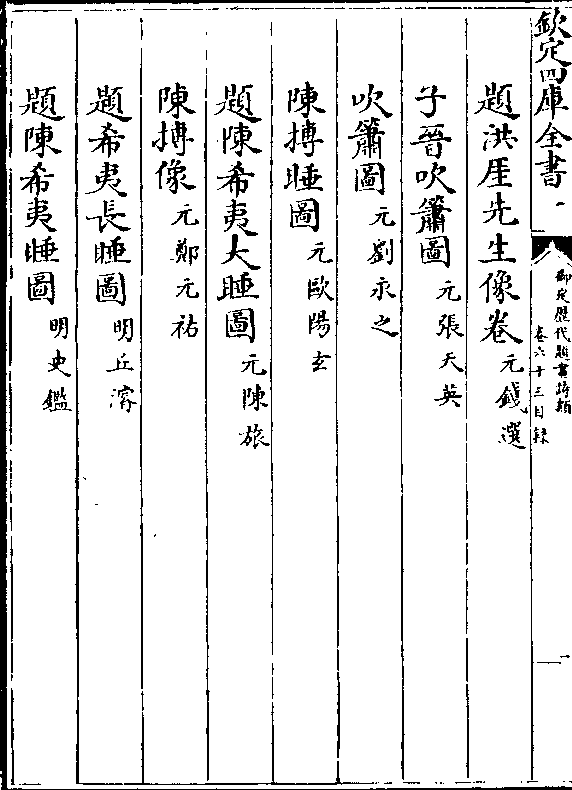 欽定四庫全書
御定歴代題畫詩類
卷六十三目録
一
題洪厓先生像卷 元錢選
子晉吹簫圖 元張天英
吹簫圖 元劉永之
陳摶睡圖 元歐陽玄
題陳希夷大睡圖 元陳旅
陳摶像 元鄭元祐
題希夷長睡圖 明丘濬
題陳希夷睡圖 明史鑑